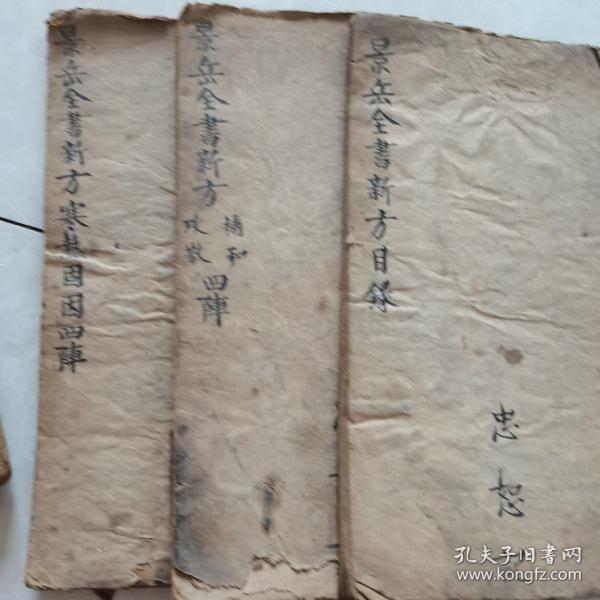 景岳全書新方目錄
忠恕
景岳全書新方補和攻散四陣
景岳全書新方寒熱固因四陣
孔夫子旧書网
www.kongfz.com